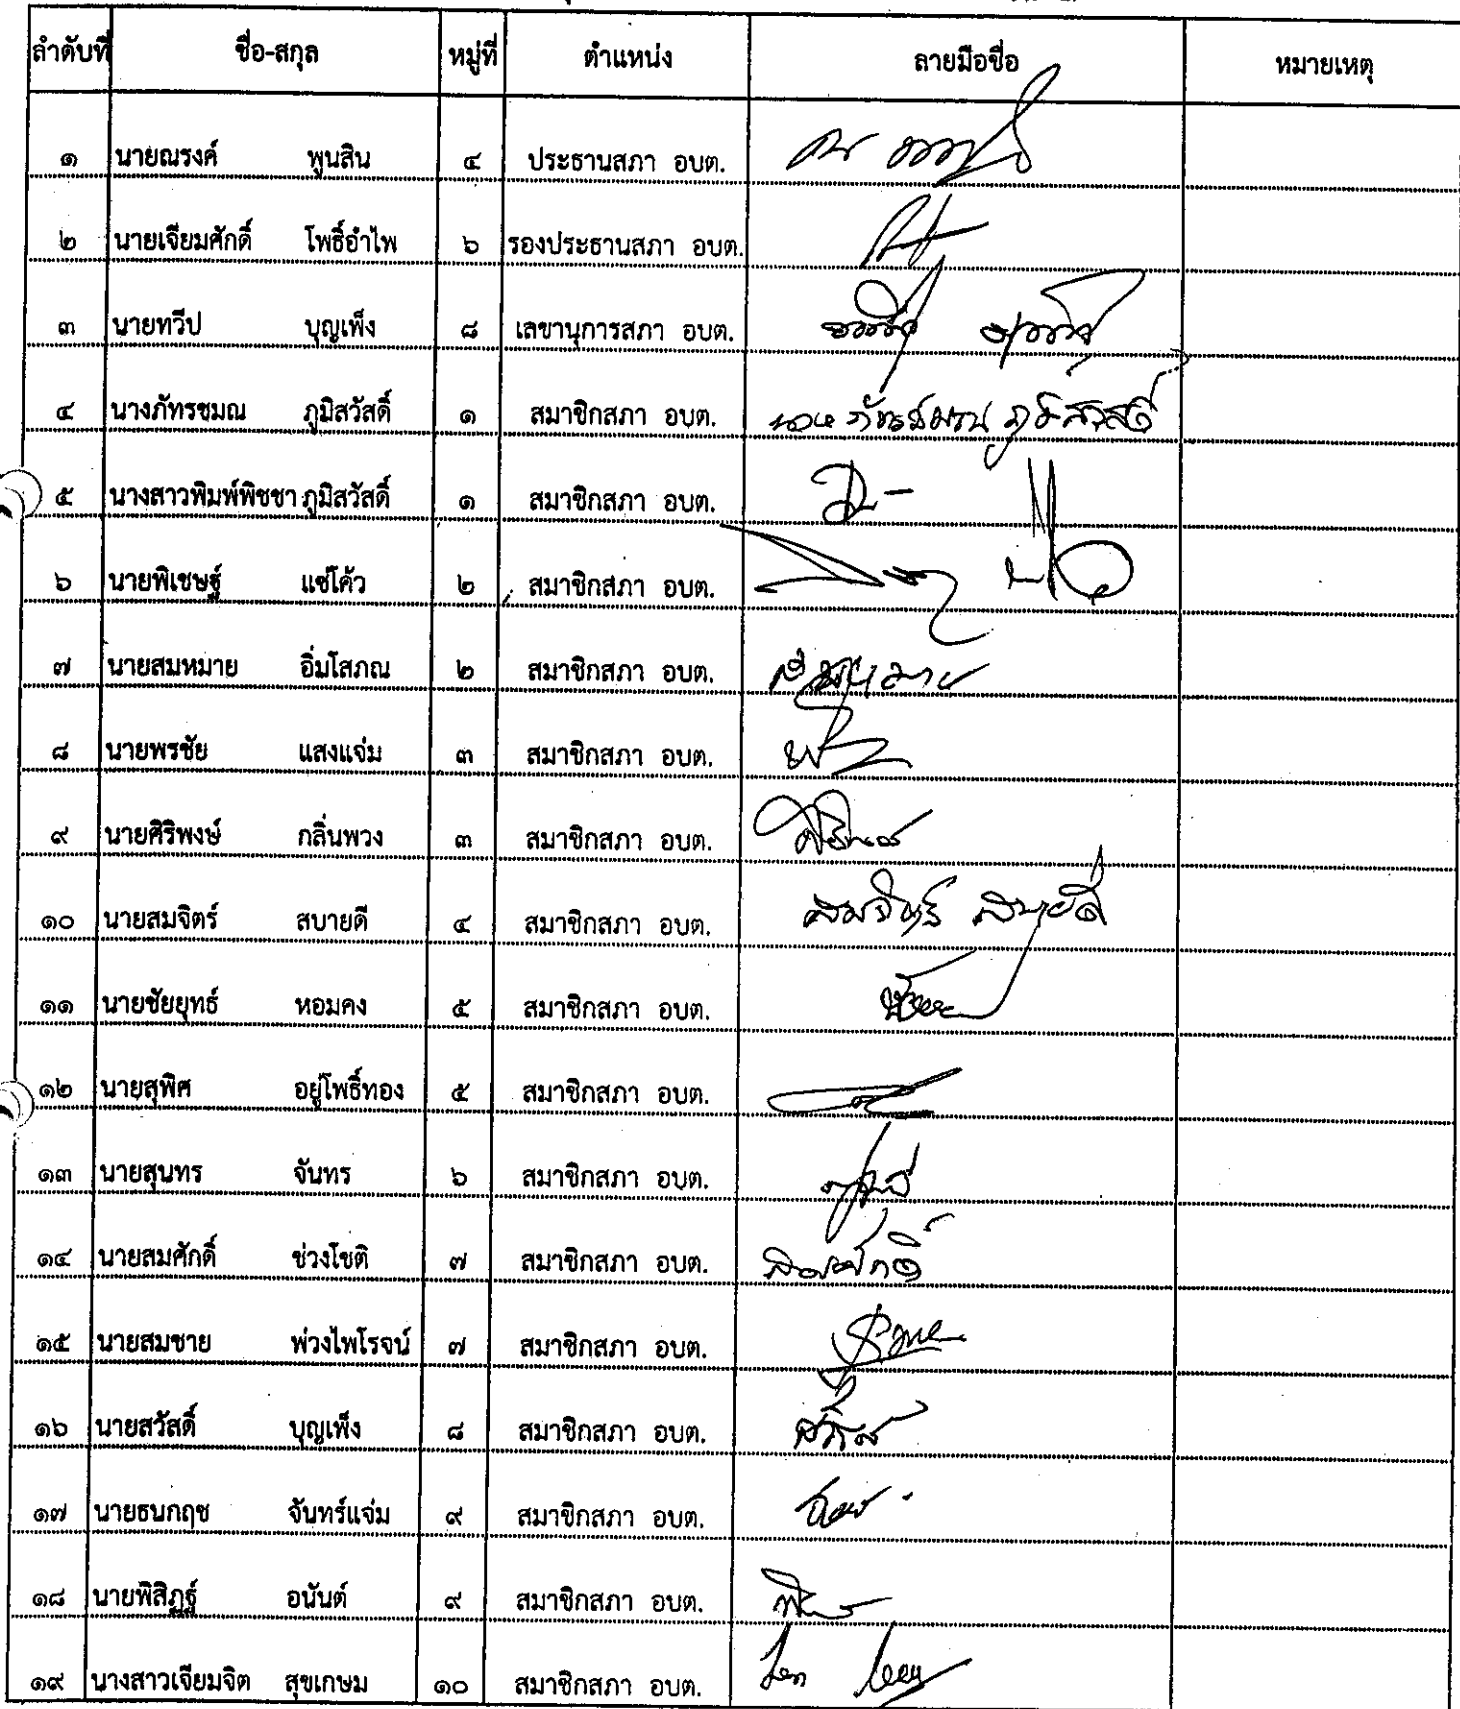 ลำดับที่ ชื่อ-สกุล หมู่ที่ ตำแหน่ง ลายมือชื่อ หมายเหตุ
๑ นายณรงค์ พูนสิน ๔ ประธานสภา อบต.
๒ นายเจียมศักดิ์ โพธิ์อำไพ ๖ รองประธานสภา อบต.
๓ นายทวีป บุญเพ็ง ๘ เลขานุการสภา อบต.
๔ นางภัทรชมณ ภูมิสวัสดิ์ ๑ สมาชิกสภา อบต. นาง ภัทรชมณ ภูมิสวัสดิ์
๕ นางสาวพิมพ์พิชชา ภูมิสวัสดิ์ ๑ สมาชิกสภา อบต.
๖ นายพิเชษฐ์ แซ่โค้ว ๒ สมาชิกสภา อบต.
๗ นายสมหมาย อิ่มโสภณ ๒ สมาชิกสภา อบต. สมหมาย
๘ นายพรชัย แสงแจ่ม ๓ สมาชิกสภา อบต.
๙ นายศิริพงษ์ กลิ่นพวง ๓ สมาชิกสภา อบต.
๑๐ นายสมจิตร์ สบายดี ๔ สมาชิกสภา อบต. สมจิตร์ สบายดี
๑๑ นายชัยยุทธ์ หอมคง ๕ สมาชิกสภา อบต.
๑๒ นายสุพิศ อยู่โพธิ์ทอง ๕ สมาชิกสภา อบต.
๑๓ นายสุนทร จันทร ๖ สมาชิกสภา อบต.
๑๔ นายสมศักดิ์ ช่วงโชติ ๗ สมาชิกสภา อบต. สมศักดิ์
๑๕ นายสมชาย พ่วงไพโรจน์ ๗ สมาชิกสภา อบต.
๑๖ นายสวัสดิ์ บุญเพ็ง ๘ สมาชิกสภา อบต.
๑๗ นายธนกฤช จันทร์แจ่ม ๙ สมาชิกสภา อบต.
๑๘ นายพิสิฏฐ์ อนันต์ ๙ สมาชิกสภา อบต.
๑๙ นางสาวเจียมจิต สุขเกษม ๑๐ สมาชิกสภา อบต.